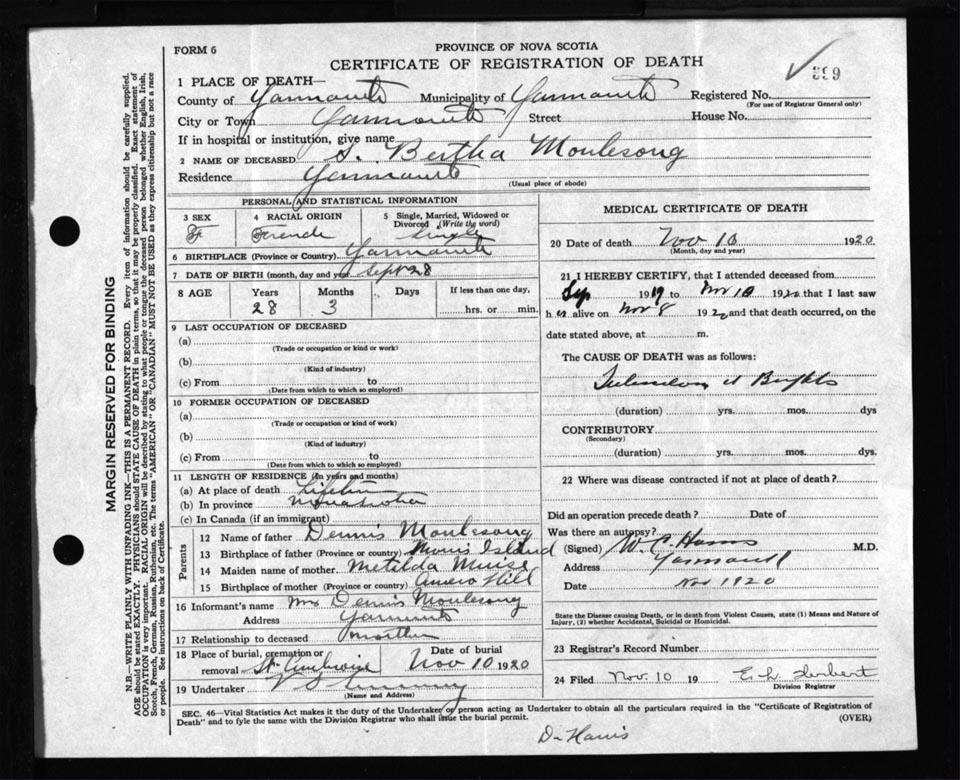 FORM 6
PROVINCE OF NOVA SCOTIA
CERTIFICATE OF REGISTRATION OF DEATH
599
1 PLACE OF DEATH—
County of Yarmouth Municipality of Yarmouth Registered No.
(For use of Registrar General only)
City or Town Yarmouth Street House No.
If in hospital or institution, give name
2 NAME OF DECEASED S. Bertha Moulesong
Residence Yarmouth
(Usual place of abode)
PERSONAL AND STATISTICAL INFORMATION
3 SEX 4 RACIAL ORIGIN 5 Single, Married, Widowed or Divorced (Write the word)
F French Single
6 BIRTHPLACE (Province or Country) Yarmouth
7 DATE OF BIRTH (month, day and year) Sept 28
8 AGE Years Months Days If less than one day,
28 3 hrs. or min.
9 LAST OCCUPATION OF DECEASED
(a)
(Trade or occupation or kind or work)
(b)
(Kind of industry)
(c) From to
(Date from which to which so employed)
10 FORMER OCCUPATION OF DECEASED
(a)
(Trade or occupation or kind of work)
(b)
(Kind of industry)
(c) From to
(Date from which to which so employed)
11 LENGTH OF RESIDENCE (in years and months)
(a) At place of death Lifetime
(b) In province Nova Scotia
(c) In Canada (if an immigrant)
Parents
12 Name of father Dennis Moulesong
13 Birthplace of father (Province or country) Morris Island
14 Maiden name of mother Metilda Muise
15 Birthplace of mother (Province or country) Hill
16 Informant's name Mrs Dennis Moulesong
Address Yarmouth
17 Relationship to deceased mother
18 Place of burial, cremation or removal St. Ambroise Date of burial Nov 10 1920
19 Undertaker
(Name and Address)
MEDICAL CERTIFICATE OF DEATH
20 Date of death Nov 10 1920
(Month, day and year)
21 I HEREBY CERTIFY, that I attended deceased from
Sep 1919 to Nov 10 1920 that I last saw
h er alive on Nov 8 1920 and that death occurred, on the
date stated above, at m.
The CAUSE OF DEATH was as follows:
(duration) yrs. mos. dys
CONTRIBUTORY
(Secondary)
(duration) yrs. mos. dys.
22 Where was disease contracted if not at place of death?
Did an operation precede death? Date of
Was there an autopsy?
(Signed) W. C. Harris M.D.
Address Yarmouth
Date Nov 1920
State the Disease causing Death, or in death from Violent Causes, state (1) Means and Nature of
Injury, (2) whether Accidental, Suicidal or Homicidal.
23 Registrar's Record Number
24 Filed Nov. 10 19 E. L. Herbert
Division Registrar
SEC. 46—Vital Statistics Act makes it the duty of the Undertaker or person acting as Undertaker to obtain all the particulars required in the "Certificate of Registration of
Death" and to fyle the same with the Division Registrar who shall issue the burial permit. (OVER)
Dr Harris
MARGIN RESERVED FOR BINDING
N.B.—WRITE PLAINLY WITH UNFADING INK—THIS IS A PERMANENT RECORD. Every item of information should be carefully supplied.
AGE should be stated EXACTLY. PHYSICIANS should STATE CAUSE OF DEATH in plain terms, so that it may be properly classified. Exact statement of
OCCUPATION is very important. RACIAL ORIGIN will be described by stating to what people or tongue the deceased person belonged whether English, Irish,
Scotch, French, German, Russian, Ruthenian, etc. The terms "AMERICAN" OR "CANADIAN" MUST NOT BE USED as they express citizenship but not a race
or people. See instructions on back of Certificate.